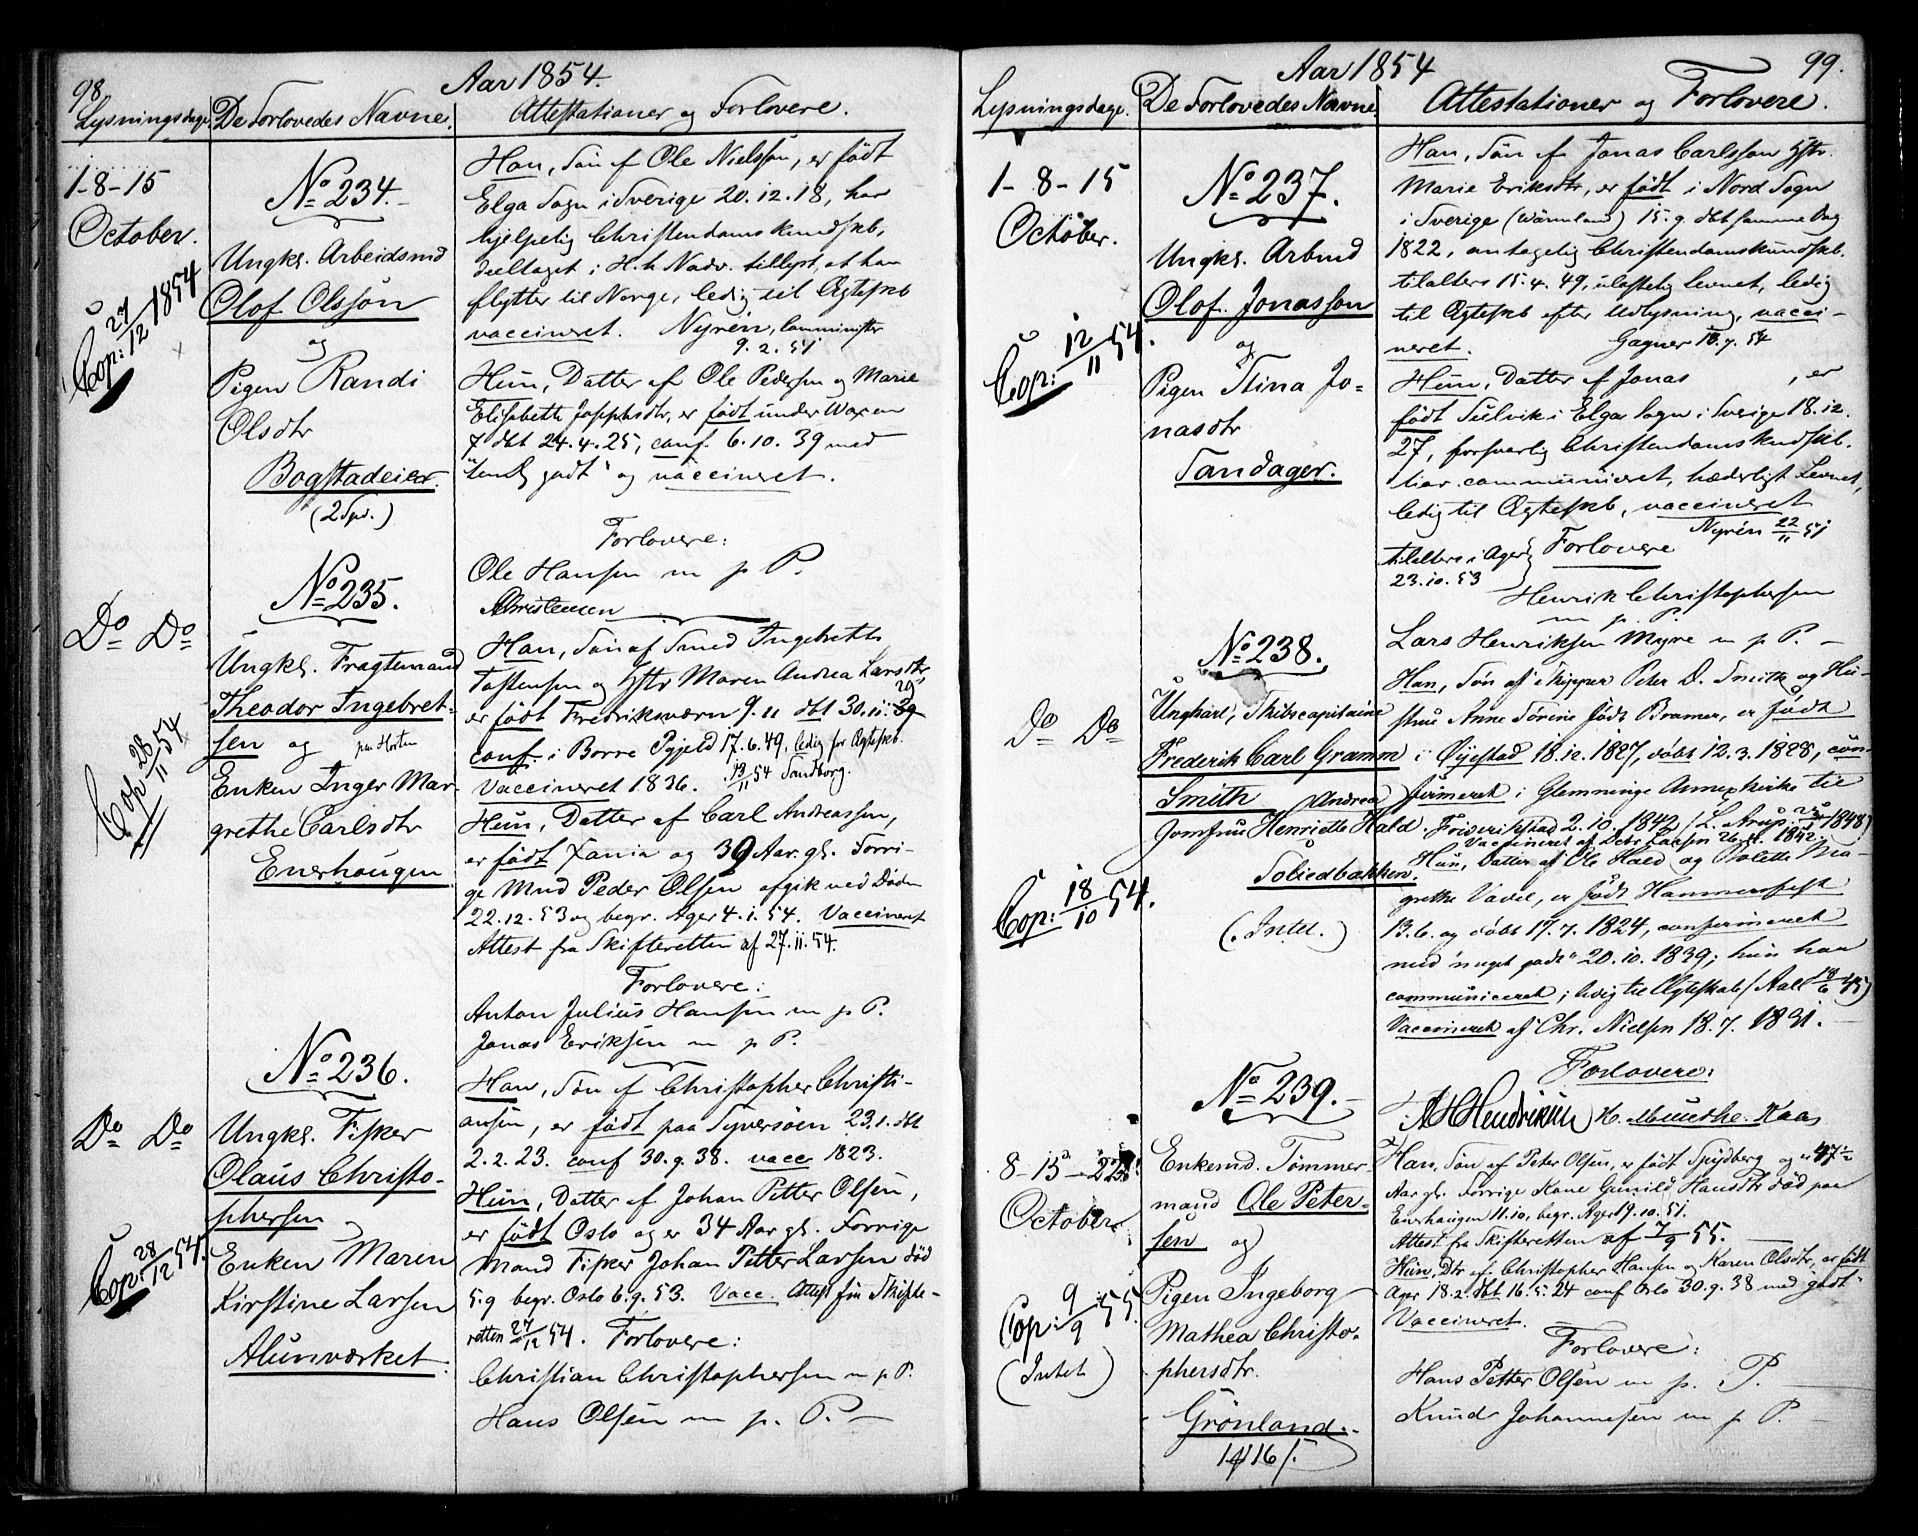 98.
Aar 1854.
Lysningsdage.
De Forlovedes Navne.
Attestationer og Forlovere.
1-8-15
October.
Cop: 27/12 1854
No 234.
Ungkl. Arbeidsmd
Olof Olsson
og
Pigen Randi
Olsdtr
Bogstadeier.
(2 Spd.)
Han, Søn af Ole Nielsson, er født
Elga Sogn i Sverige 20.12.18, har
hjelpelig Christendomskundskb,
deeltaget i H. h Nadv. tillyst, at han
flytter til Norge, ledig til Ægteskb
vaccineret. Nyrén, Comminister
9.2.54
Hun, Datter af Ole Pedersen og Marie
Elisabeth Josephsdtr, er født under Waxen
7 dbt 24.4.25, conf. 6.10.39 med
godt" og vaccineret.
Forlovere:
Ole Hansen m p P.
AChristensen
Do Do
Cop 28/11 54
No 235.
Ungkl. Fragtemand
Theodor Ingebret-
sen og paa Horten
Enken Inger Mar-
grethe Carlsdtr
Enerhaugen
Han, Søn af Smed Ingebreth
Tostensen og Hstr Maren Andrea Larsdtr,
er født Fredriksværn 9.11 dbt 30.11.29
conf. i Borre Pgjeld 17.6.49, ledig for Ægteskb.
Vaccineret 1836. 13/11 54 Sandborg.
Hun, Datter af Carl Andreassen,
er født Xania og 39 Aar gl. Forri-
ge Mnd Peder Olsen afgik ved Døden
22.12.53 og begr. Ager 4.1.54. Vaccineret
Attest fra Skifteretten af 27.11.54.
Forlovere:
Anton Julius Hansen m p P.
Jonas Eriksen m p P.
Do Do
Cop: 28/12 54.
No 236.
Ungkl. Fisker
Olaus Christo-
phersen
Enken Maren
Kirstine Larsen
Alunværket.
Han, Søn af Christopher Christi-
ansen, er født paa Syversøen 23.1. dbt
2.2.23. conf 30.9.38. vacc 1823.
Hun, Datter af Johan Petter Olsen,
er født Oslo og er 34 Aar gl. Forrige
Mand Fisker Johan Petter Larsen død
5.9 begr. Oslo 6.9.53. Vacc. Attest fra Skifte-
retten 27/12 54. Forlovere:
Christian Christophersen m p P.
Hans Olsen m p. P.
99.
Aar 1854
Lysningsdage.
De Forlovedes Navne
Attestationer og Forlovere.
1-8-15
October.
Cop: 12/11 54.
No 237.
Ungkl. Arbmd
Olof Jonasson
og
Pigen Stina Jo-
nasdtr
Sandager.
Han, Søn af Jonas Carlsson Hstr.
Marie Eriksdtr, er født i Nord Sogn
i Sverige (Wärmland) 15.9. dbt samme Dag
1822, antagelig Christendomskundskb.
tilalters 15.4.49, ulastelig levnet, ledig
til Ægteskb efter Udlysning, vacci-
neret. Gagner 18.9.54
Hun, Datter af Jonas , er
født Sulvik i Elga Sogn i Sverige 18.12.
27, forsvarlig Christendomskndskb.
har communiceret, hæderligt Levnet,
ledig til Ægteskb, vaccineret
Nyrén 22/11 51
tilalters i Ager
23.10.53
Forlovere
Henrik Christophersen
m p.
Lars Henriksen Myre m p P.
Do Do
Cop: 18/10 54.
No 238.
Ungkarl, Skibscapitaine
Frederik Carl Gramm
Smith
Jomfru Henriette Andrea Hald
Toliedbakken.
(. Intet.)
Han, Søn af Skipper Peter D. Smith og Hu-
stru Anne Sørine født Bramer, er født
i Øyestad 18.12.1827, døbt 12.3.1828, con-
firmeret i Glemminge Annexkirke til
Friderikstad 2.10.1842
Hun, Datter af Ole Hald og Bolette Ma-
grethe Vavel, er født Hammerfest
13.6. og døbt 17.7.1824, confirmeret
med "meget godt" 20.10.1839; hun har
communiceret; ledig til Ægteskab (Aall 18/6 45)
Vaccineret af Chr. Nielsen 18.7.1831.
Forlovere:
AHHendriksen H. Munthe-Kaas
8-15-22
October.
Cop: 9/9 55.
(Intet)
No 239.
Enkemd. Tømmer-
mand Ole Peter-
sen og
Pigen Ingeborg
Mathea Christo-
phersdtr.
Grönland.
Han, Søn af Peter Olsen, er født Spydberg og er 47 1/2
Aar gl. Forrige Kone Gunild Hansdtr død paa
Enerhaugen 11.10, begr. Ager 19.10.51.
Attest fra Skifteretten af 7/9 55.
Hun, Dtr af Christopher Hansen og Karen Olsdtr, er født
Ager 18.2. dbt 16.5.24 conf Oslo 30.9.38 med "godt"
Vaccineret.
Forlovere:
Hans Petter Olsen m p. P.
Knud Johannesen m p P.